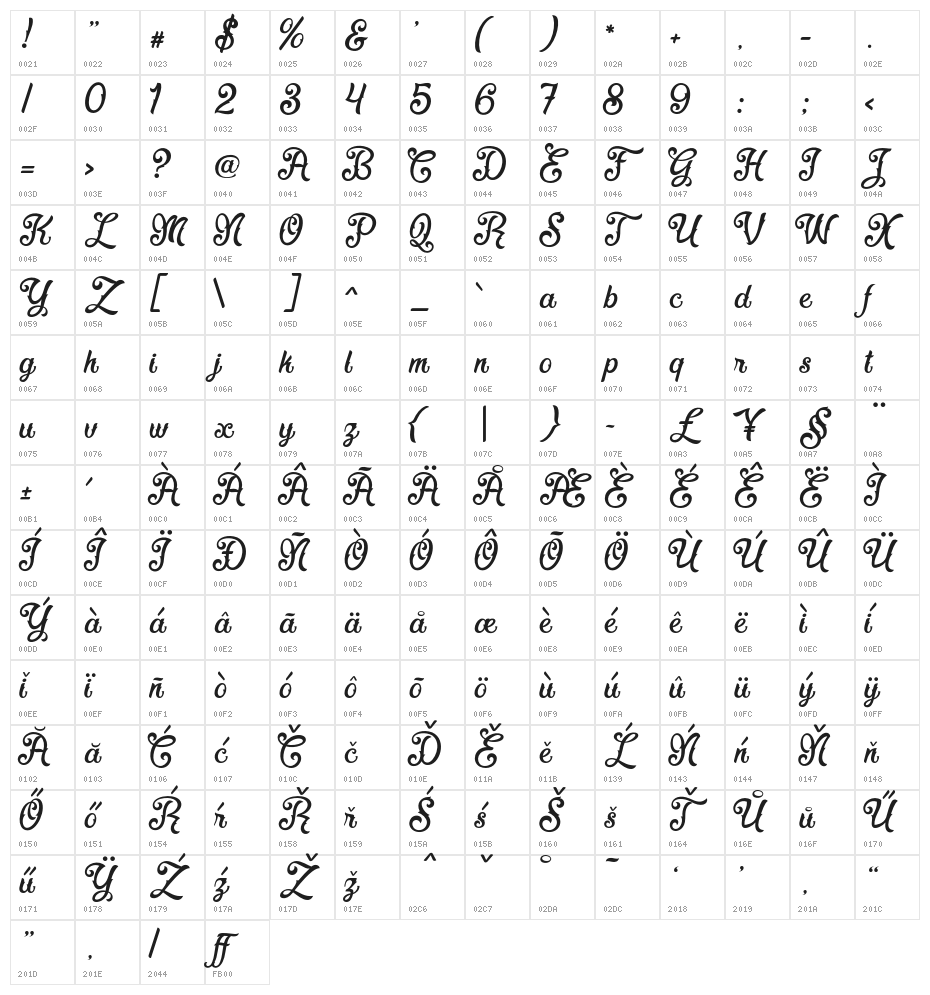 ! " # $ % & ' ( ) * + , - .
0021 0022 0023 0024 0025 0026 0027 0028 0029 002A 002B 002C 002D 002E
/ 0 1 2 3 4 5 6 7 8 9 : ; <
002F 0030 0031 0032 0033 0034 0035 0036 0037 0038 0039 003A 003B 003C
= > ? @ A B C D E F G H I J
003D 003E 003F 0040 0041 0042 0043 0044 0045 0046 0047 0048 0049 004A
K L M N O P Q R S T U V W X
004B 004C 004D 004E 004F 0050 0051 0052 0053 0054 0055 0056 0057 0058
Y Z [ \ ] ^ _ ` a b c d e f
0059 005A 005B 005C 005D 005E 005F 0060 0061 0062 0063 0064 0065 0066
g h i j k l m n o p q r s t
0067 0068 0069 006A 006B 006C 006D 006E 006F 0070 0071 0072 0073 0074
u v w x y z { | } ~ £ ¥ § ¨
0075 0076 0077 0078 0079 007A 007B 007C 007D 007E 00A3 00A5 00A7 00A8
± ´ À Á Â Ã Ä Å Æ È É Ê Ë Ì
00B1 00B4 00C0 00C1 00C2 00C3 00C4 00C5 00C6 00C8 00C9 00CA 00CB 00CC
Í Î Ï Ð Ñ Ò Ó Ô Õ Ö Ù Ú Û Ü
00CD 00CE 00CF 00D0 00D1 00D2 00D3 00D4 00D5 00D6 00D9 00DA 00DB 00DC
Ý à á â ã ä å æ è é ê ë ì í
00DD 00E0 00E1 00E2 00E3 00E4 00E5 00E6 00E8 00E9 00EA 00EB 00EC 00ED
î ï ñ ò ó ô õ ö ù ú û ü ý ÿ
00EE 00EF 00F1 00F2 00F3 00F4 00F5 00F6 00F9 00FA 00FB 00FC 00FD 00FF
Ă ă Ć ć Č č Ď Ě ě Ĺ Ń ń Ň ň
0102 0103 0106 0107 010C 010D 010E 011A 011B 0139 0143 0144 0147 0148
Ő ő Ŕ ŕ Ř ř Ś ś Š š Ť Ů ů Ű
0150 0151 0154 0155 0158 0159 015A 015B 0160 0161 0164 016E 016F 0170
ű Ÿ Ź ź Ž ž ˆ ˇ ˚ ˜ ‘ ’ ‚ “
0171 0178 0179 017A 017D 017E 02C6 02C7 02DA 02DC 2018 2019 201A 201C
” „ ⁄ ff
201D 201E 2044 FB00